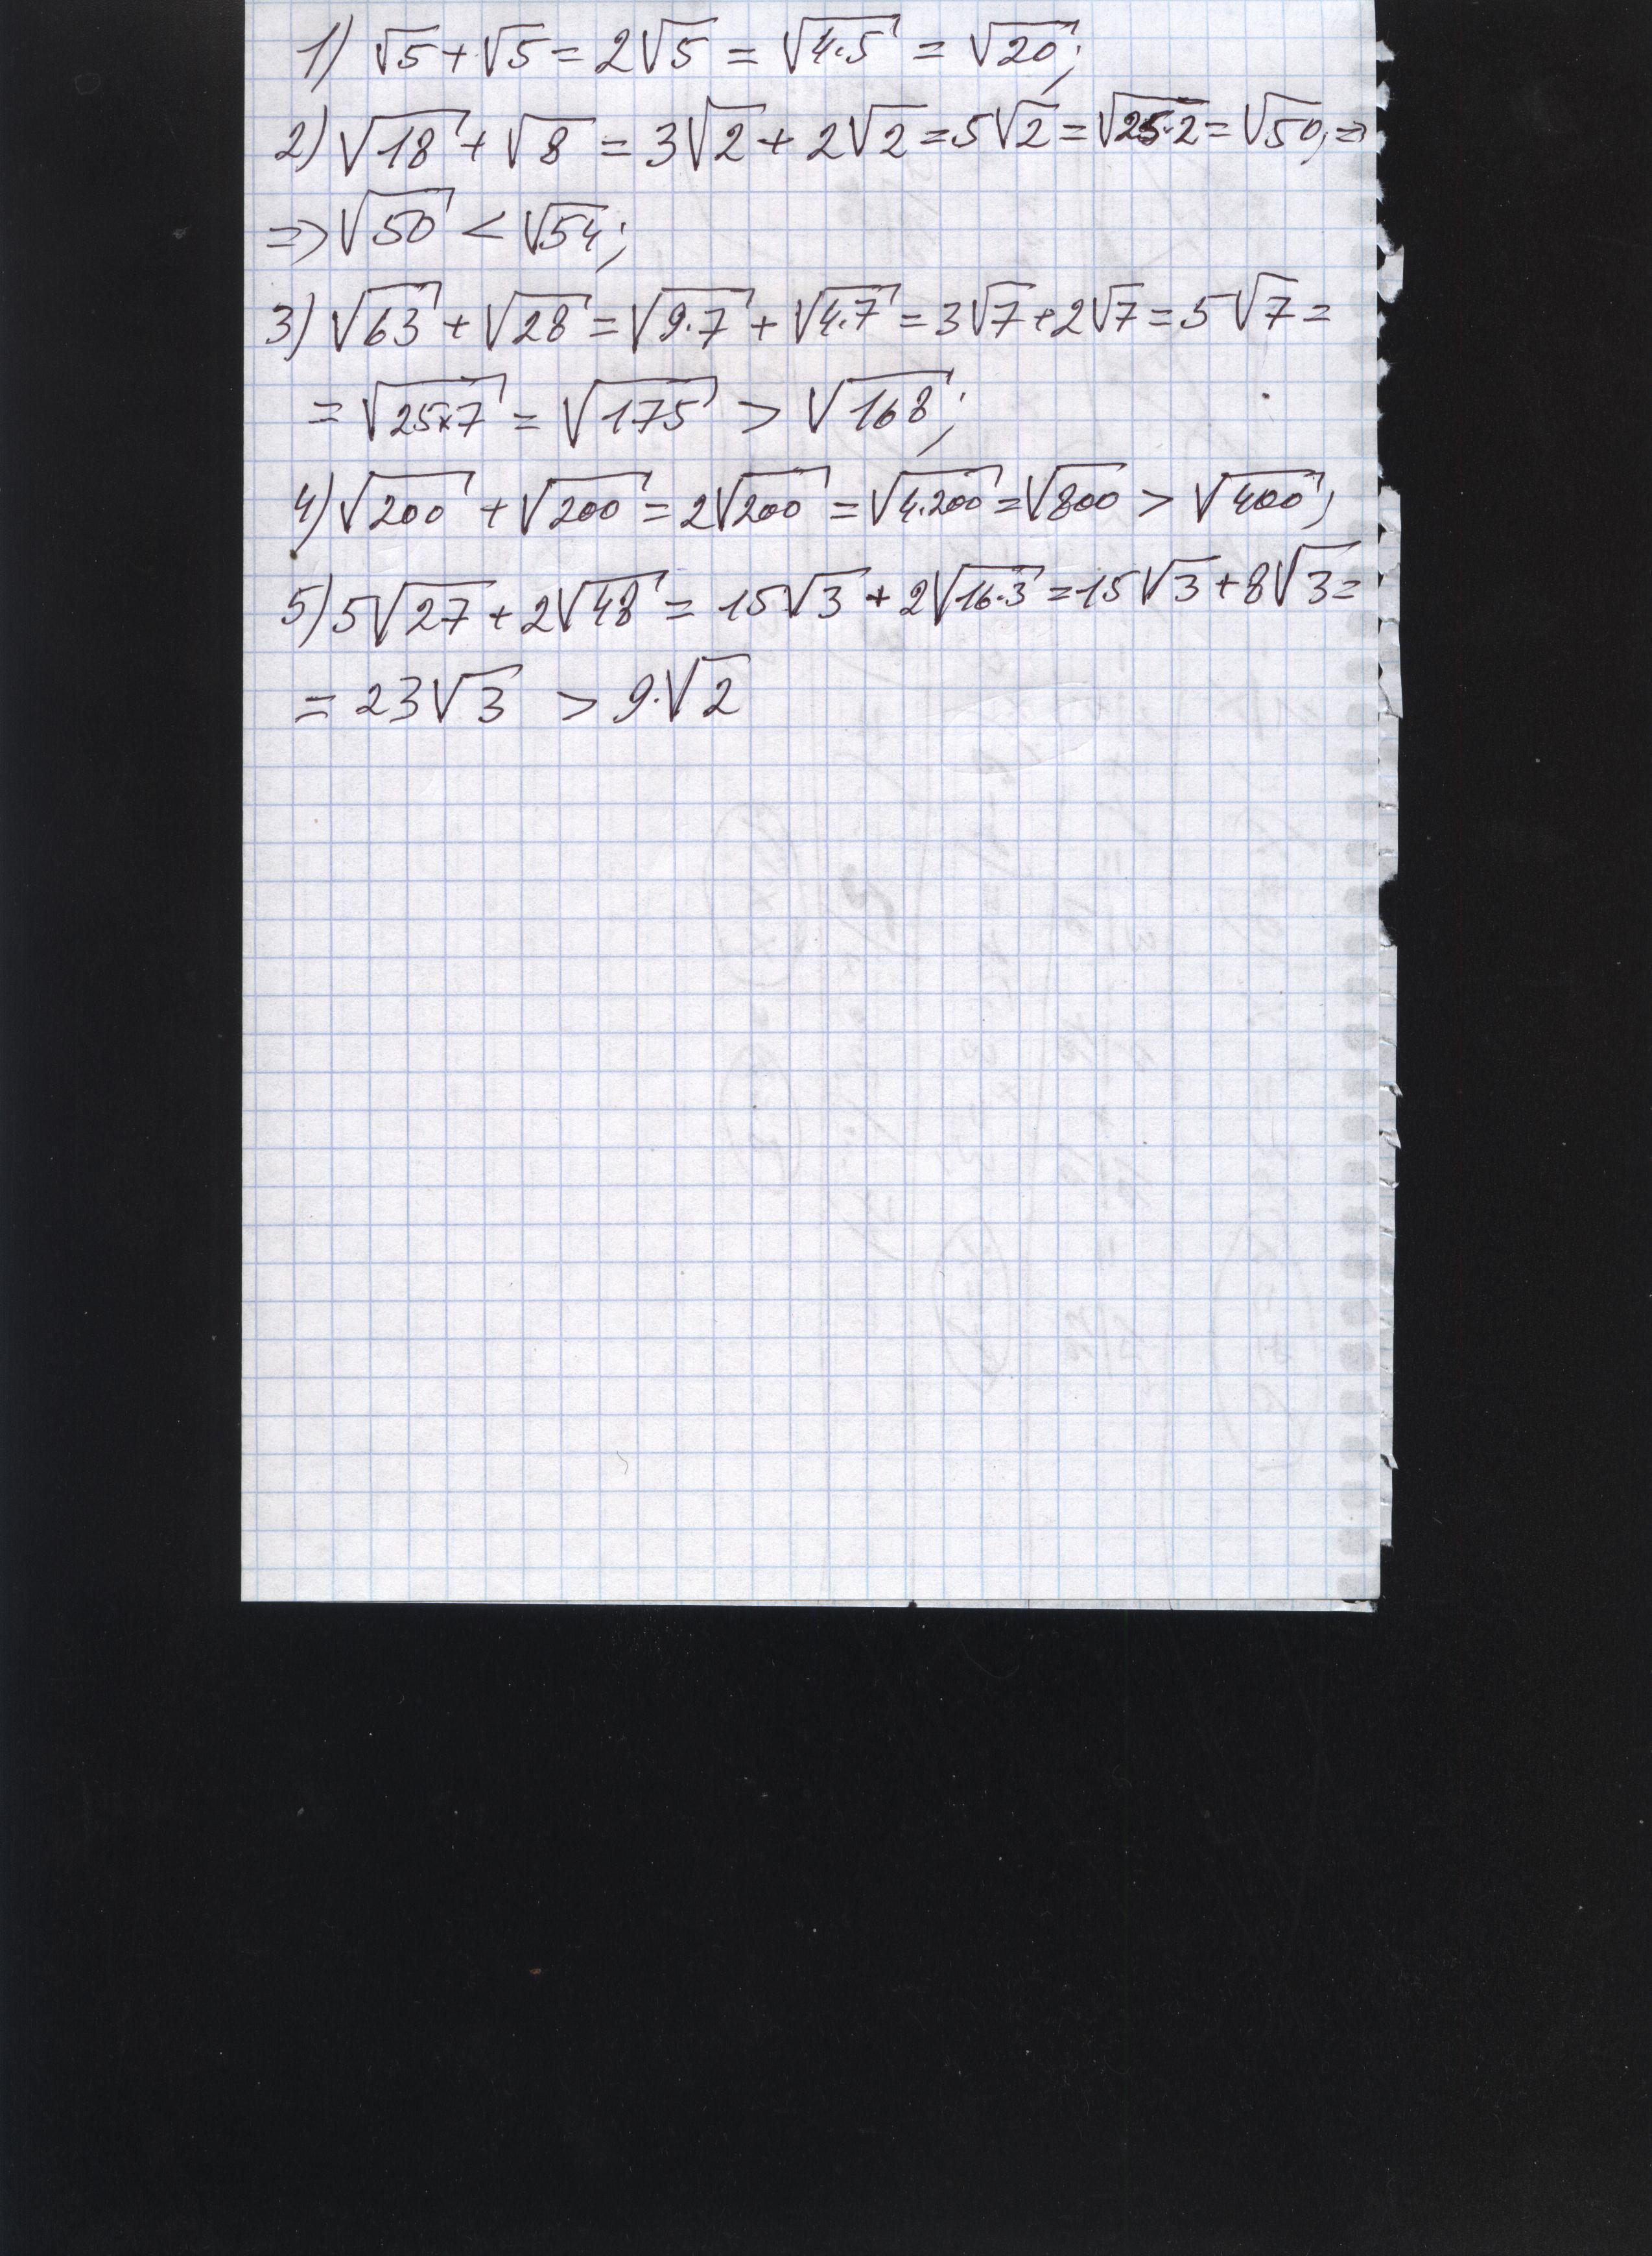 1) √5 + √5 = 2√5 = √4·5 = √20;
2) √18 + √8 = 3√2 + 2√2 = 5√2 = √25·2 = √50; ⇒
⇒ √50 < √54;
3) √63 + √28 = √9·7 + √4·7 = 3√7 + 2√7 = 5√7 =
= √25×7 = √175 > √168;
4) √200 + √200 = 2√200 = √4·200 = √800 > √400;
5) 5√27 + 2√48 = 15√3 + 2√16·3 = 15√3 + 8√3 =
= 23√3 > 9·√2